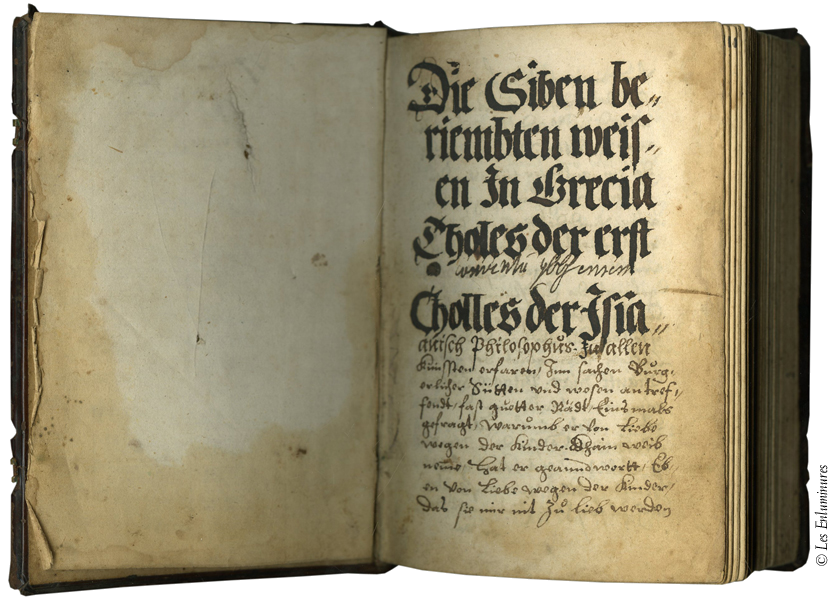 Die Siben be„
riembten weis„
en In Grecia
Tholes der erst
Tholles der Isia„
anisch Philosophus. In allen
Künsten erfaren, Inn sachen Burg„
erlicher Sütten und wesen antref„
fendt, fast guetter Rädt, Einsmals
gefragt, warumb er von Liebe
wegen der Kinder khain weib
neme, hat er geanndtwortt, Eb„
en von Liebe wegen der Kinder,
das sie mir nit zu lieb werden
© Les Enluminures